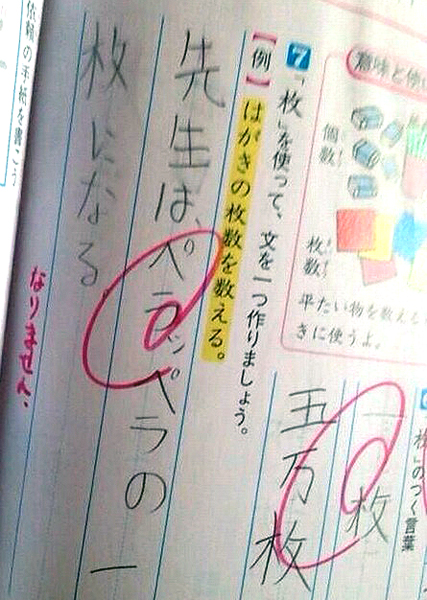 意味と使い
個数!
枚数!
平たい物を数える
きに使うよ。
枚」のつく言葉
一枚
五万枚
7 「枚」を使って、文を一つ作りましょう。
【例】はがきの枚数を数える。
先生は、ペラッペラの一
枚になる
なりません。
依頼の手紙を書こう